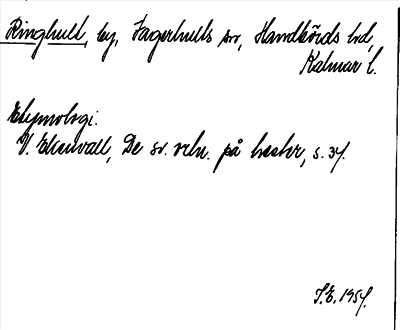 Ringhult, by, Fagerhults sn, Handbörds hd,
Kalmar l.
Etymologi:
V. Ekenvall, De sv. ortn. på hester, s. 34.
S.E. 1954.